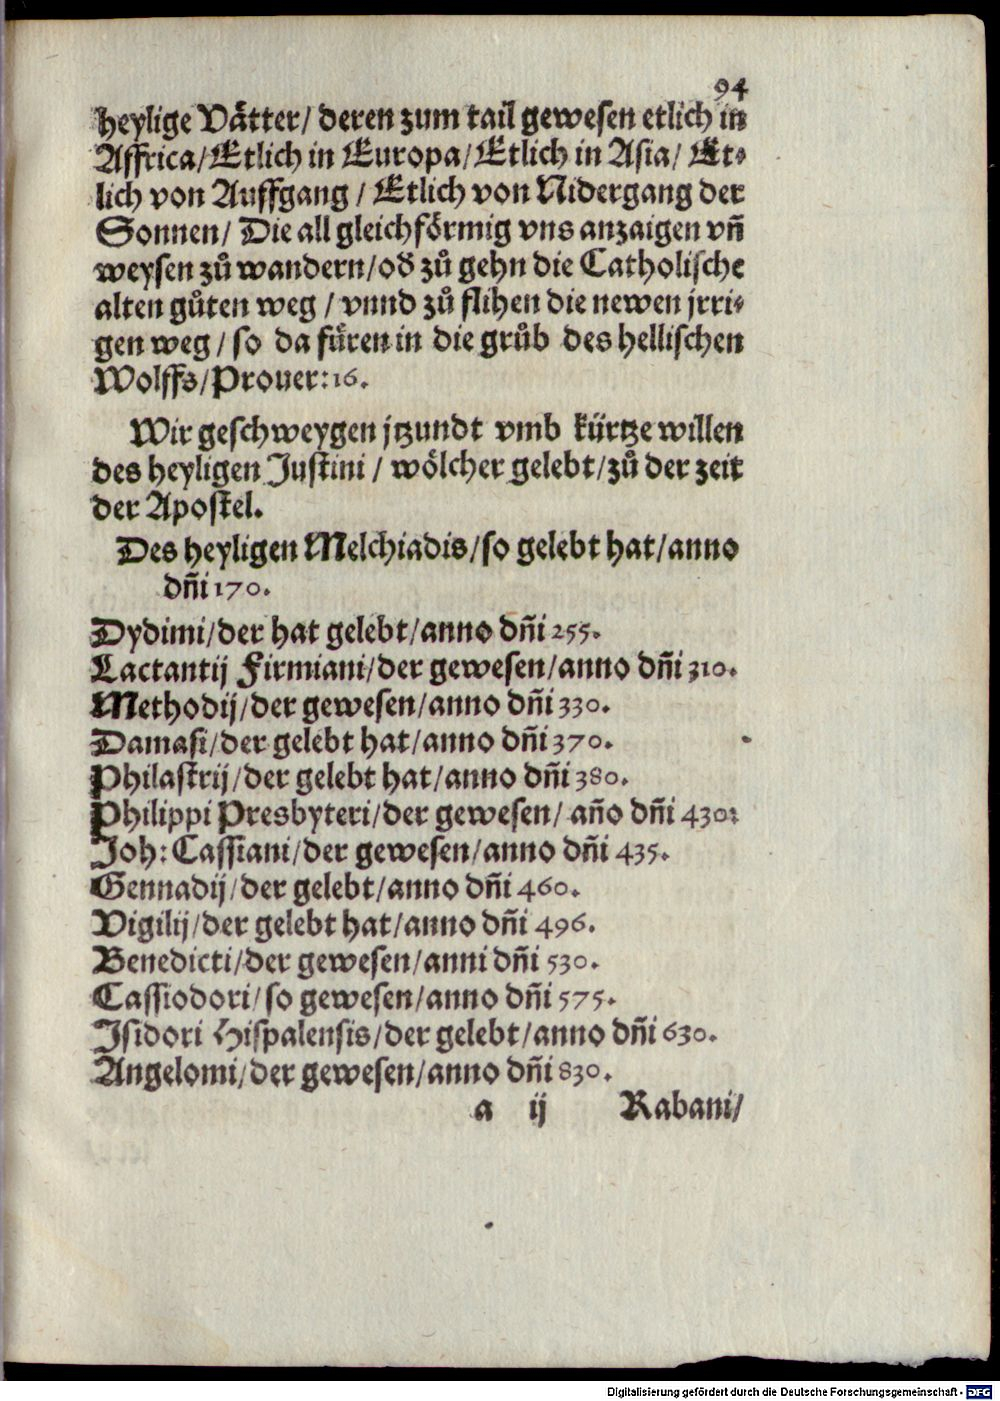 94
heylige Vätter/ deren zum tail gewesen etlich in
Affrica/Etlich in Europa/Etlich in Asia/ Et⸗
lich von Auffgang / Etlich von Nidergang der
Sonnen/ Die all gleichförmig vns anzaigen vñ
weysen zů wandern/od zů gehn die Catholische
alten gůten weg / vnnd zů flihen die newen jrri⸗
gen weg / so da füren in die grůb des hellischen
Wolffs/Prouer:16.
Wir geschweygen jtzundt vmb kürtze willen
des heyligen Justini / wölcher gelebt/zů der zeit
der Apostel.
Des heyligen Melchiadis/so gelebt hat/anno
dñi 170.
Dydimi/der hat gelebt/anno dñi 255.
Lactantij Firmiani/der gewesen/anno dñi 310.
Methodij/der gewesen/anno dñi 330.
Damasi/der gelebt hat/anno dñi 370.
Philastrij/der gelebt hat/anno dñi 380.
Philippi Presbyteri/der gewesen/ año dñi 430.
Joh: Cassiani/der gewesen/anno dñi 435.
Gennadij/der gelebt/anno dñi 460.
Vigilij/der gelebt hat/anno dñi 496.
Benedicti/der gewesen/anni dñi 530.
Cassiodori/so gewesen/anno dñi 575.
Isidori Hispalensis/der gelebt/anno dñi 630.
Angelomi/der gewesen/anno dñi 830.
a ij Rabani/
Digitalisierung gefördert durch die Deutsche Forschungsgemeinschaft - DFG